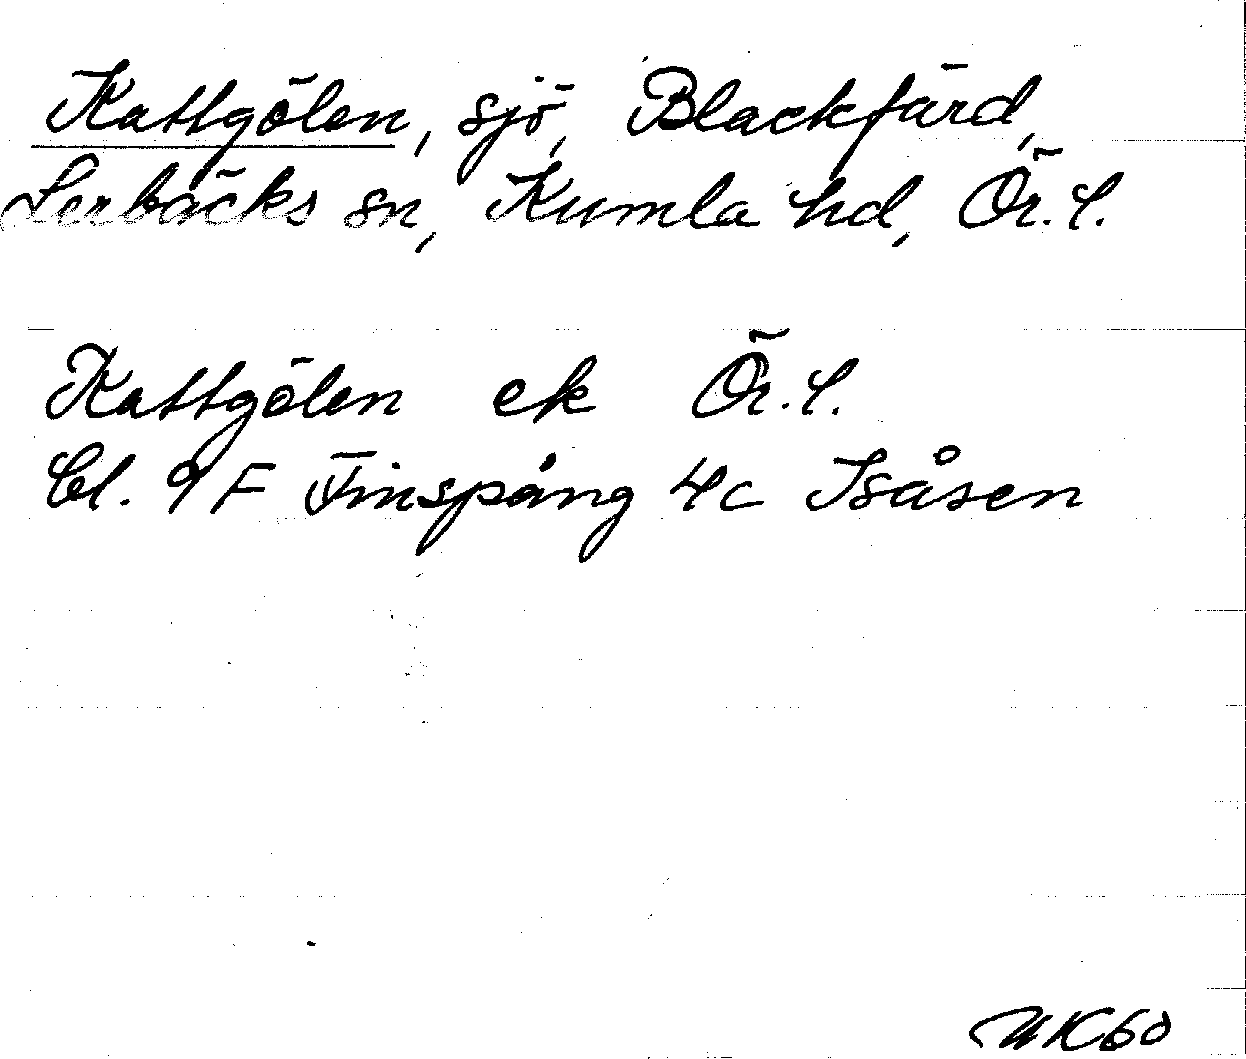 Kattgölen, sjö, Blackfärd,
Lerbäcks sn, Kumla hd, Ör.l.
Kattgölen ek Ör.l.
bl. 9F Finspång 4c Isåsen
UK60